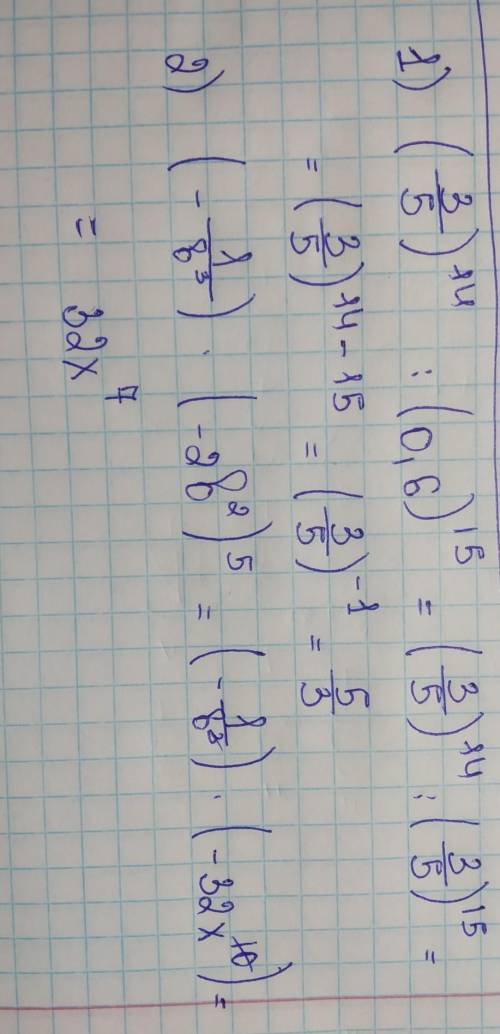 1) (3/5)^14 : (0,6)^15 = (3/5)^14 : (3/5)^15 =
= (3/5)^14-15 = (3/5)^-1 = 5/3
2) (- 1/8^3) · (-28^2)^5 = (- 1/8^3) · (-32x^10) =
= 32x^7